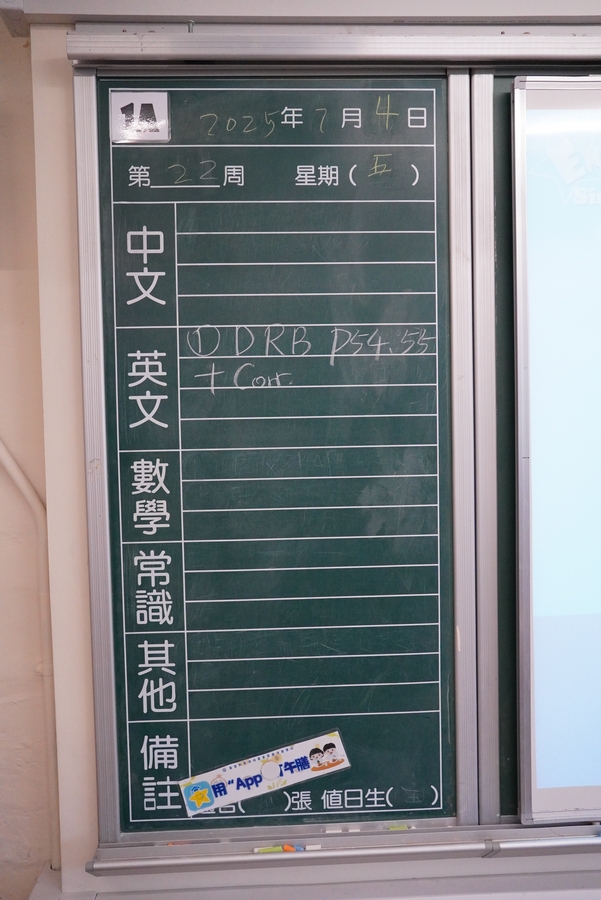 1A
2025年7月4日
第22周 星期(五)
中文
英文
① DRB P54.55
+ Corr.
數學
常識
其他
備註
用"App 午膳
張 值日生( )